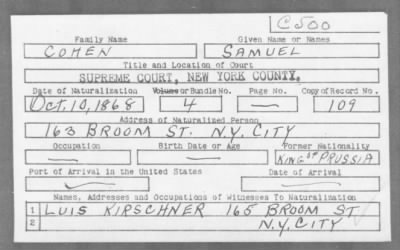 C500
Family Name Given Name or Names
COHEN SAMUEL
Title and Location of Court
SUPREME COURT, NEW YORK COUNTY.
Date of Naturalization Volume or Bundle No. Page No. Copy of Record No.
Oct. 10, 1868 4 — 109
Address of Naturalized Person
163 BROOM ST. N.Y. CITY
Occupation Birth Date or Age Former Nationality
— — KING OF PRUSSIA
Port of Arrival in the United States Date of Arrival
— —
Names, Addresses and Occupations of Witnesses To Naturalization
1 LUIS KIRSCHNER 165 BROOM ST
2 N.Y. CITY